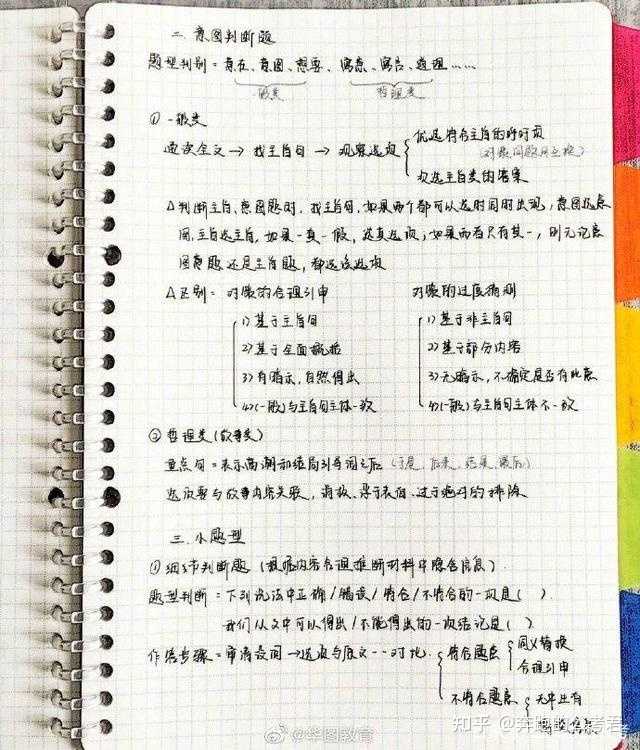 二、意图判断题
题型判别 = 意在、意图、想要、寓意、寓言、道理……
一般类 哲理类
① 一般类
速读全文 → 找主旨句 → 观察选项
优选符合主旨的对对项
(对策问题用主旨)
次选主旨类的答案
△判断主旨、意图题时,找主旨句,如果两个都可以选时同时出现,意图选意
图,主旨选主旨,如果一真一假,选真选项;如果两者只有其一,则无论意
图意题还是主旨题,都选该选项
△区别: 对策的合理引申 对策的过度猜测
1) 基于主旨句 1) 基于非主旨句
2) 基于全面概括 2) 基于部分内容
3) 有暗示,自然得出 3) 无暗示,不确定是否有此意
4) (一般)与主旨句主体一致 4) (一般)与主旨句主体不一致
② 哲理类(故事类)
重点句 = 表示高潮和结局引导词之后 (于是、后来、结果、最后)
选项要与故事内容关联,消极、浮于表面、过于绝对的排除
三、小题型
① 细节判断题 (根据内容合理推断材料中隐含信息)
题型判断 = 下列说法中正确/错误/符合/不符合的一项是( )
我们从文中可以得出/不能得出的一项结论是( )
作答步骤 = 审清设问 → 选项与原文一一对比
符合题意
同义替换
合理引申
不符合题意
无中生有
@华图教育
知乎 @奔跑
考君